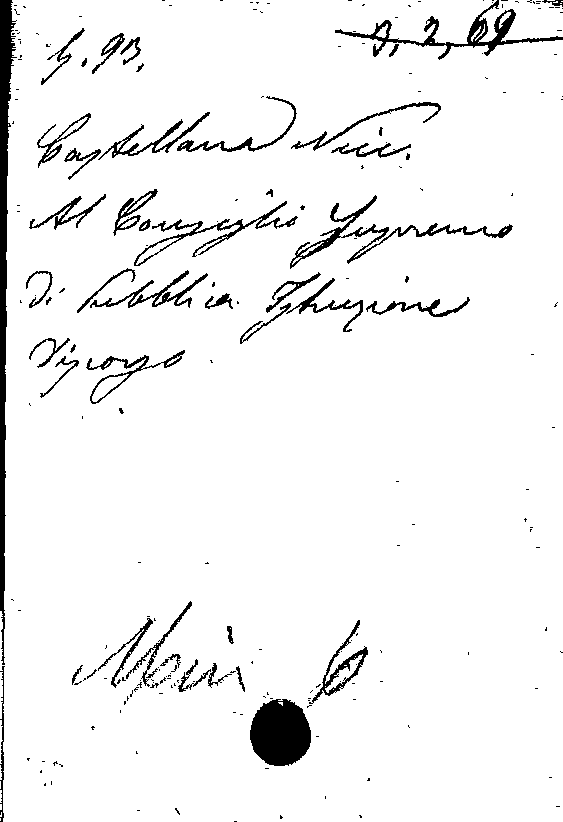 G. 93.
D, 2, 69
Castellana Nicc.
Al Consiglio Supremo
Di Pubblica Istruzione
Discorso